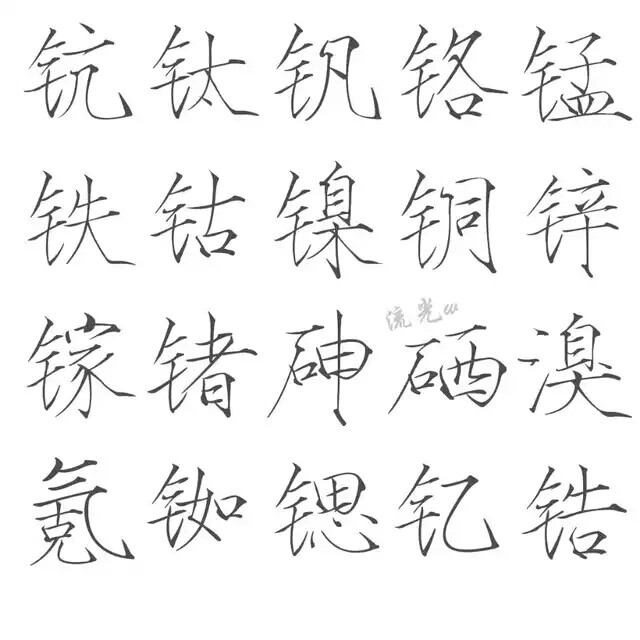 钪钛钒铬锰
铁钴镍铜锌
流光
镓锗砷硒溴
氪铷锶钇锆